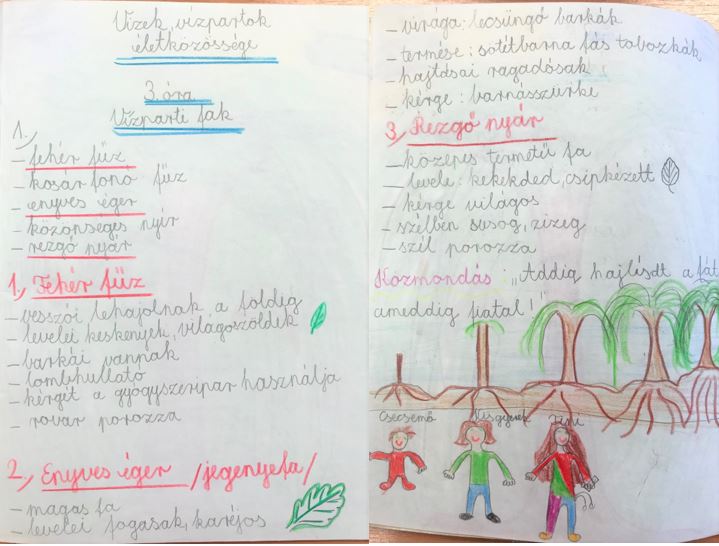 Vizek, vízpartok
életközössége
3. óra
Vízparti fák
1.,
– fehér fűz
– kosárfonó fűz
– enyves éger
– közönséges nyír
– rezgő nyár
1., Fehér fűz
– vesszői lehajolnak a földig
– levelei keskenyek, világoszöldek
– barkái vannak
– lombhullató
– kérgét a gyógyszeripar használja
– rovar porozza
2., Enyves éger /jegenyefa/
– magas fa
– levelei fogasak, karéjos
– virága: lecsüngő barkák
– termése: sötétbarna fás tobozkák
– hajtásai ragadósak
– kérge: barnásszürke
3., Rezgő nyár
– közepes termetű fa
– levele: kekekded, csipkézett
– kérge világos
– szélben susog, zizeg
– szél porozza
Közmondás: „Addig hajlísdt a fát
ameddig fiatal!"
Csecsemő Kisgyerek Tini